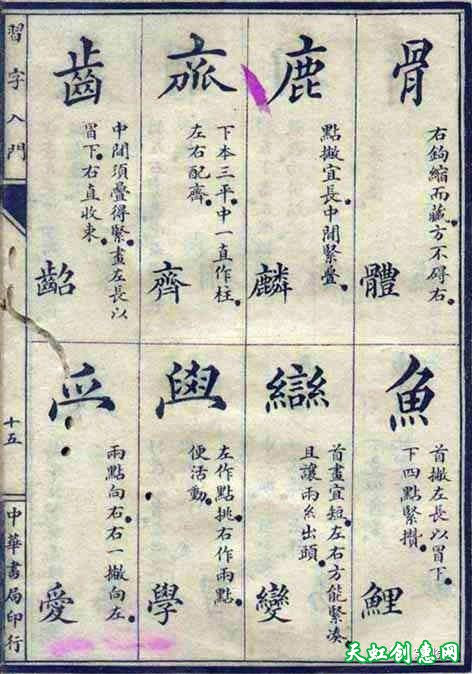 骨
右鉤縮而藏。方不碍右。
體
鹿
點撇宜長。中間緊疊。
麟
下本三平。中一直作柱。
左右配齊。
齊
齒
中間須疊得緊。畫左長以
冒下。右直收束。
齠
魚
首撇左長以冒下。
下四點緊攢。
鯉
䜌
首畫宜短。左右方能緊湊。
且讓兩糸出頭。
變
左作點挑。右作兩點。
便活動。
學
兩點向右。右一撇向左。
愛
習字入門
十五
中華書局印行
天虹创意网